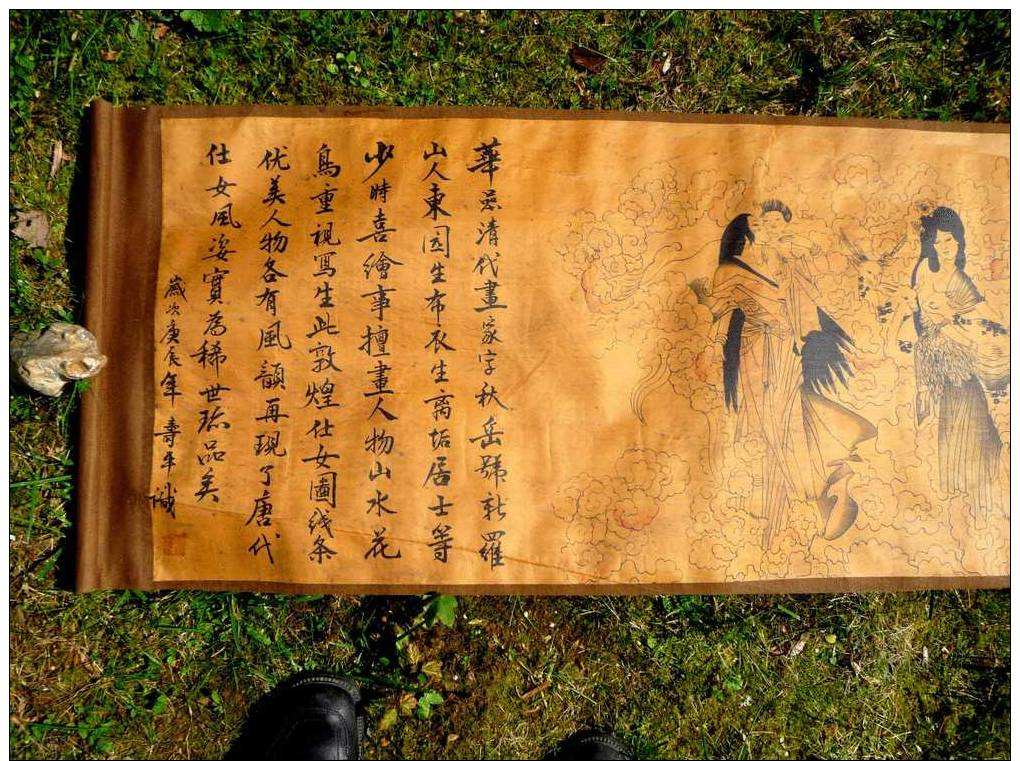 華嵒清代畫家字秋岳號新羅
山人東园生布衣生离垢居士等
少時喜繪事擅畫人物山水花
鳥重視寫生此敦煌仕女圖线条
优美人物各有風韻再現了唐代
仕女風姿實為稀世珎品矣
歲次庚辰年 壽平識